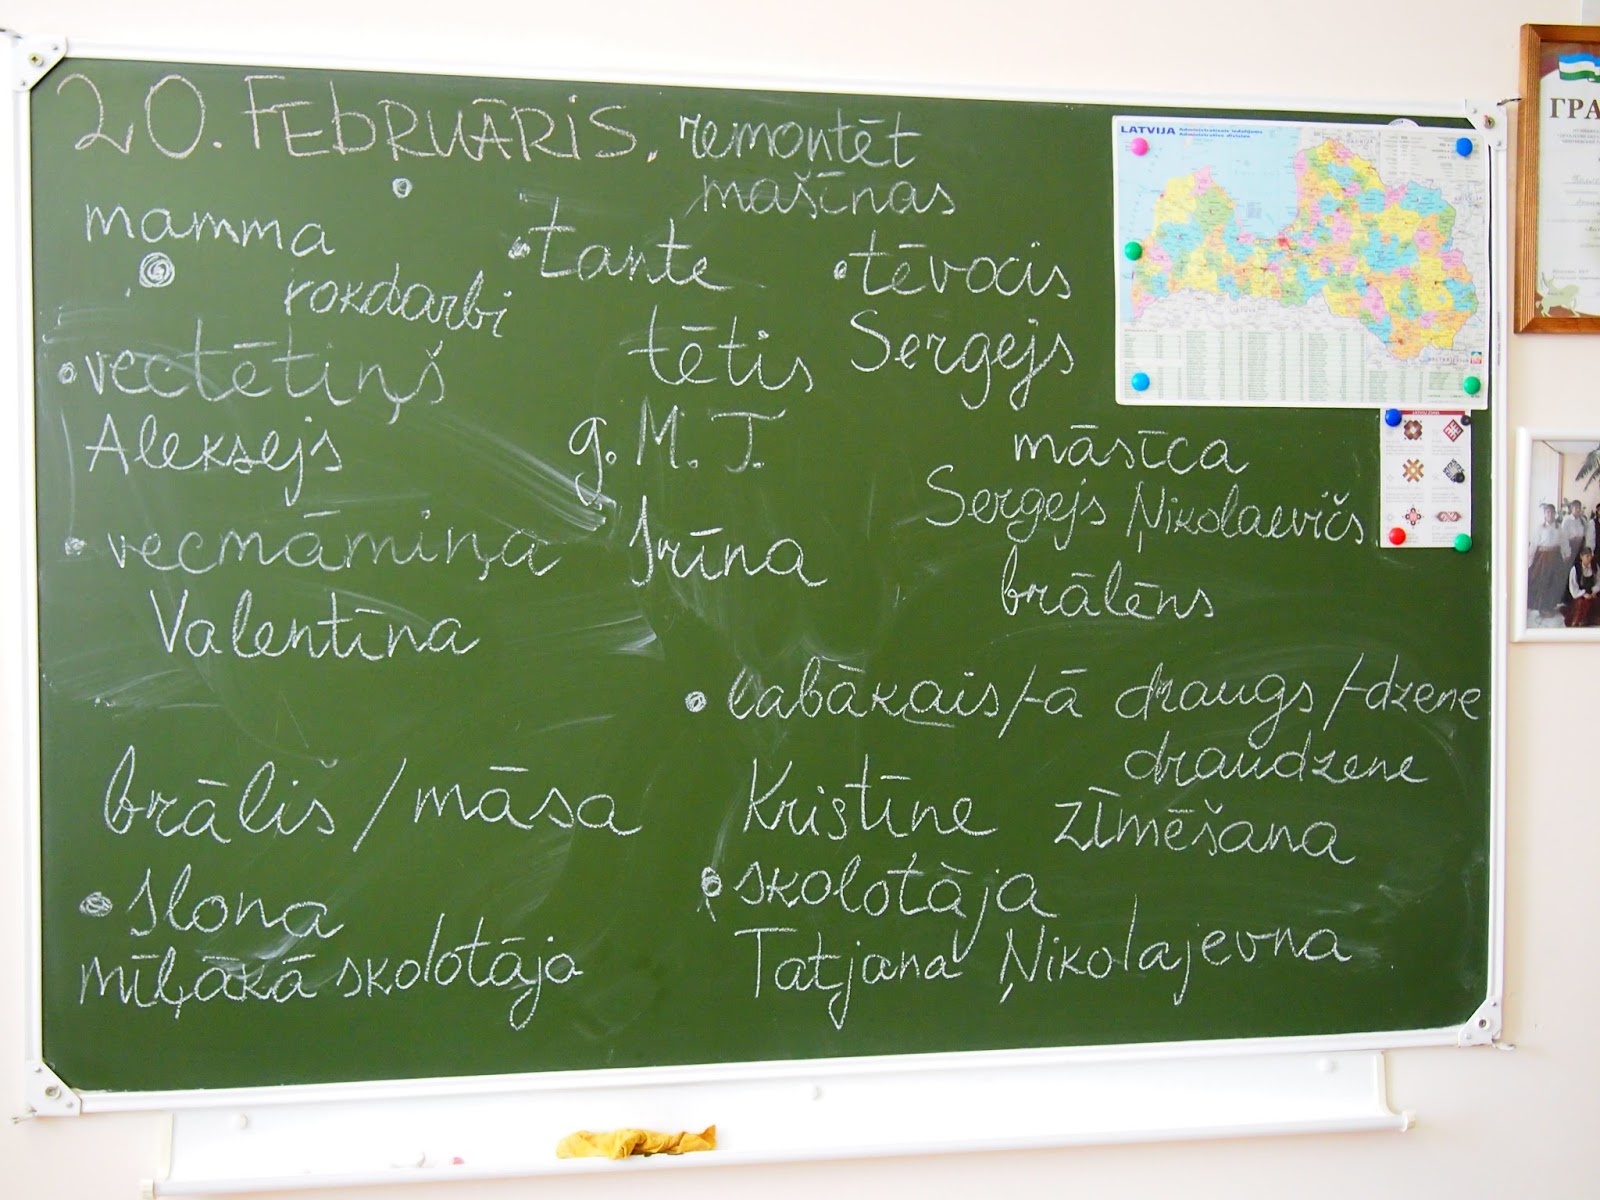 20. FEBRUĀRIS. remontēt
mašīnas
mamma
tante
tēvocis
rokdarbi
vectētiņš
tētis
Sergejs
Aleksejs
g. M. T.
māsīca
Sergejs Ņikolaevičs
vecmāmiņa
Irīna
brālēns
Valentīna
labākais/-ā draugs/-dzene
draudzene
brālis/māsa
Kristīne zīmēšana
Ilona
skolotāja
mīļākā skolotāja
Tatjana Ņikolajevna
LATVIJA Administratīvais iedalījums
Administrative division
ГРА